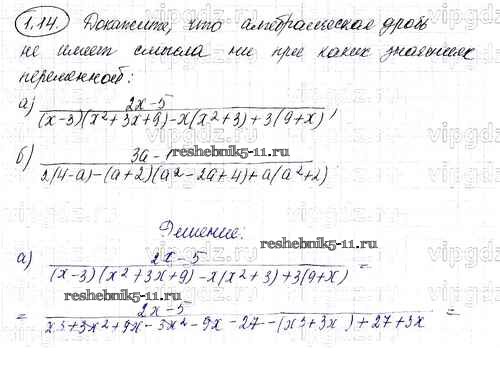 1.14. Докажите, что алгебраическая дробь
не имеет смысла ни при каких значениях
переменной:
а) (2x-5)/((x-3)(x²+3x+9)-x(x²+3)+3(9+x)),
б) (3a-)/(2(4-a)-(a+2)(a²-2a+4)+a(a²+2))
reshebnik5-11.ru
Решение:
а) (2x-5)/((x-3)(x²+3x+9)-x(x²+3)+3(9+x)) =
reshebnik5-11.ru
= (2x-5)/(x3+3x²+9x-3x²-9x-27-(x3+3x)+27+3x) =
reshebnik5-11.ru
vipgdz.ru